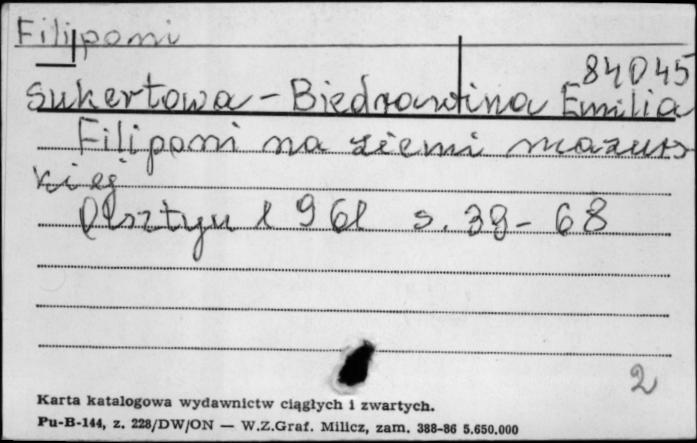 Filiponi
84045
Sukertowa - Biedrawina Emilia
Filiponi na ziemi mazurs
kiej
Olsztyn 1961 s. 39-68
2
Karta katalogowa wydawnictw ciągłych i zwartych.
Pu-B-144, z. 228/DW/ON — W.Z.Graf. Milicz, zam. 388-86 5.650.000